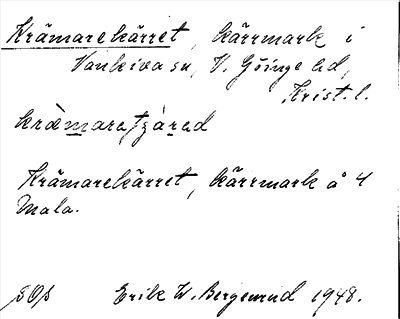 Krämarekärret, kärrmark i
Vankiva sn, V. Göinge hd,
Krist. l.
Krämarekärret, kärrmark å 4
Mala.
Erik W. Bergenrud 1948.